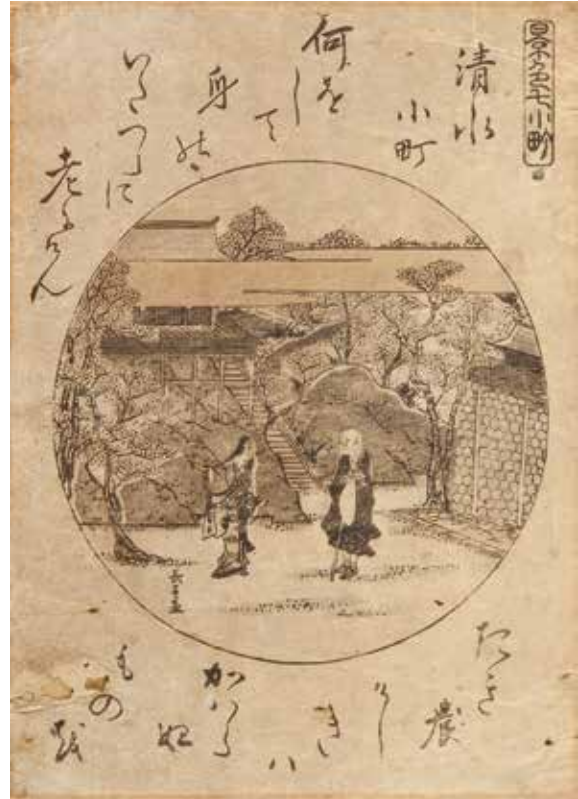 景色七小町
清水
小町
何を
して
身の
いたつらに
老ぬらん
たき
農
けし
きハ
かハら
ぬ
もの
越